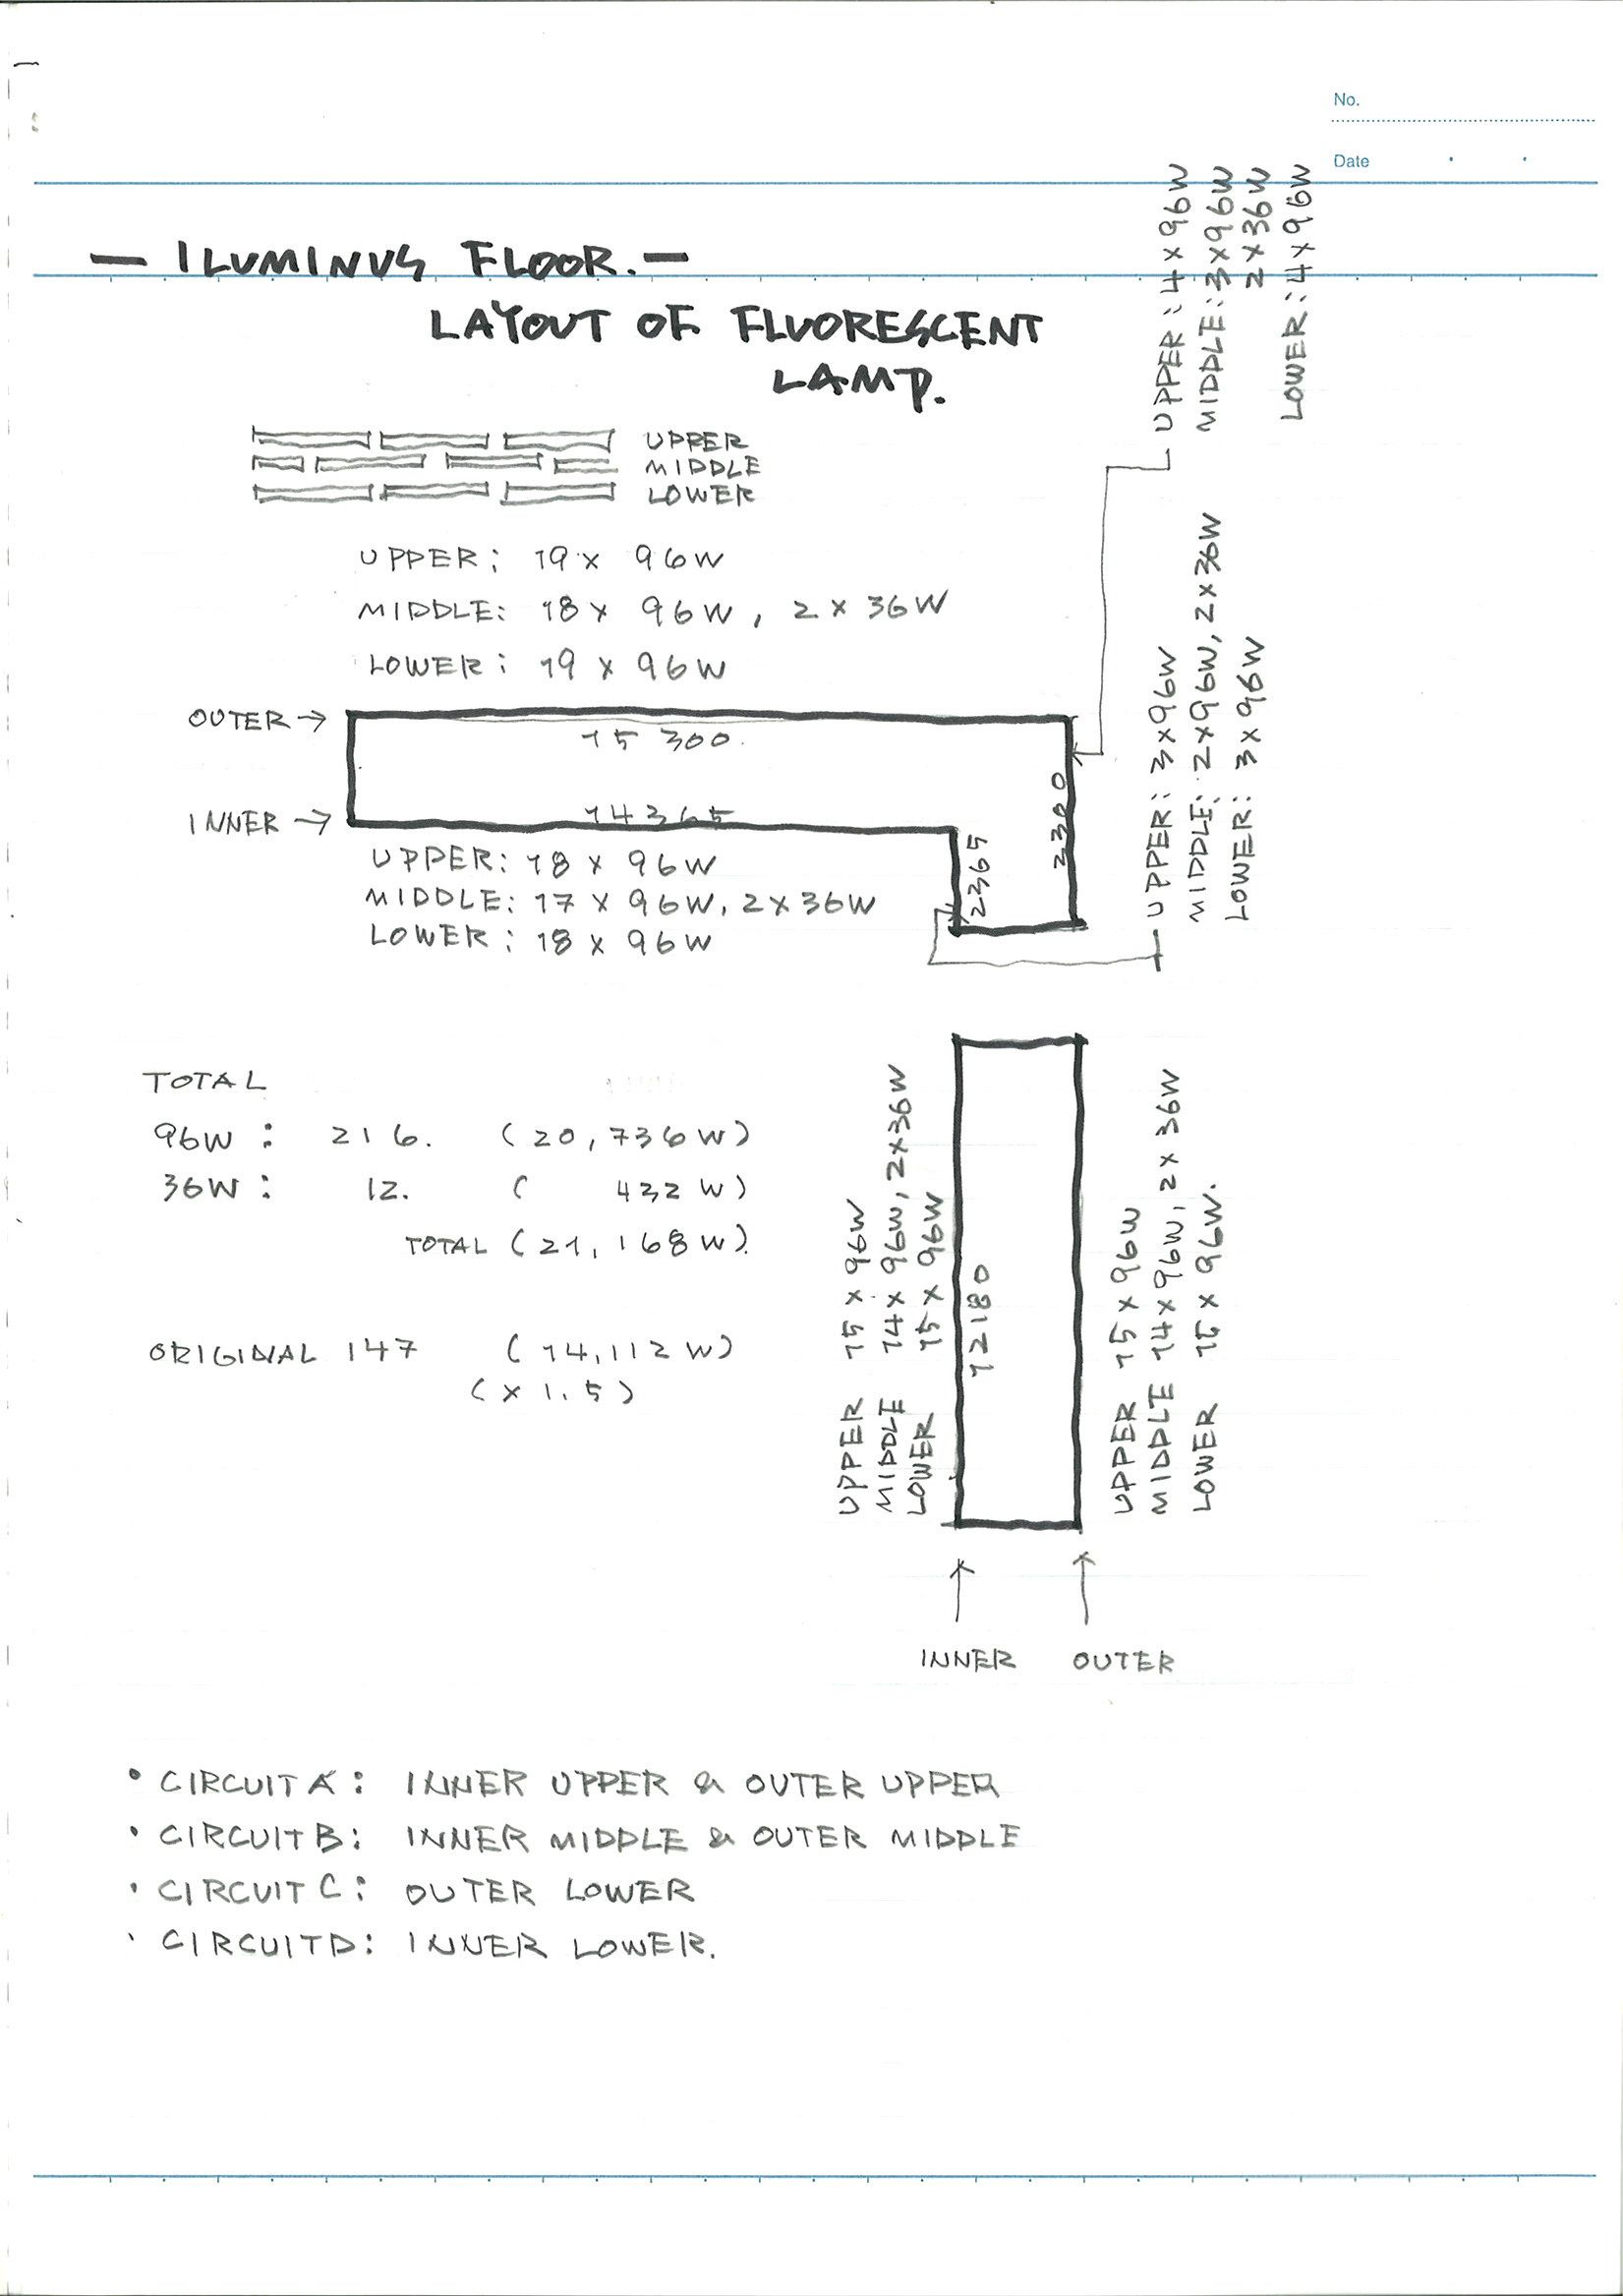 No.
Date
— ILUMINUS FLOOR. —
LAYOUT OF FLUORESCENT
LAMP.
UPPER : 4 x 96W
MIDDLE : 3 x 96W
2 x 36W
LOWER : 4 x 96W
UPPER
MIDDLE
LOWER
UPPER: 19 x 96W
MIDDLE: 18 x 96W, 2 x 36W
LOWER: 19 x 96W
UPPER: 3 x 96W
MIDDLE: 2 x 96W, 2 x 36W
LOWER: 3 x 96W
OUTER →
15 300
INNER →
14365
2365
UPPER: 18 x 96W
MIDDLE: 17 x 96W, 2 x 36W
LOWER : 18 x 96W
TOTAL
96W : 216. (20,736W)
36W : 12. ( 432 W)
TOTAL (21,168W).
ORIGINAL 147 (14,112W)
(x 1.5)
UPPER 15 x 96W
MIDDLE 14 x 96W, 2x36W
LOWER 15 x 96W
12180
UPPER 15 x 96W
MIDDLE 14 x 96W, 2 x 36W
LOWER x 96W.
INNER OUTER
• CIRCUIT A : INNER UPPER & OUTER UPPER
• CIRCUIT B : INNER MIDDLE & OUTER MIDDLE
• CIRCUIT C : OUTER LOWER
• CIRCUIT D : INNER LOWER.